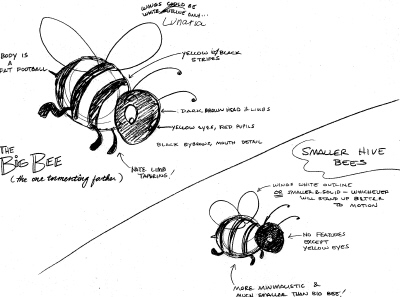 WINGS COULD BE
WHITE OUTLINE ONLY...
Lunarsa
BODY IS
A
FAT FOOTBALL
YELLOW w/BLACK
STRIPES
DARK BROWN HEAD & LIMBS
YELLOW EYES, RED PUPILS
BLACK EYEBROWS, MOUTH DETAIL
THE
BIG BEE
(the one tormenting father)
NOTE LIMB
TAPERING!
SMALLER HIVE
BEES
WINGS WHITE OUTLINE
OR SMALLER & SOLID - WHICHEVER
WILL STAND UP BETTER
TO MOTION
NO FEATURES
EXCEPT
YELLOW EYES
MORE MINIMALISTIC &
MUCH SMALLER THAN BIG BEE!